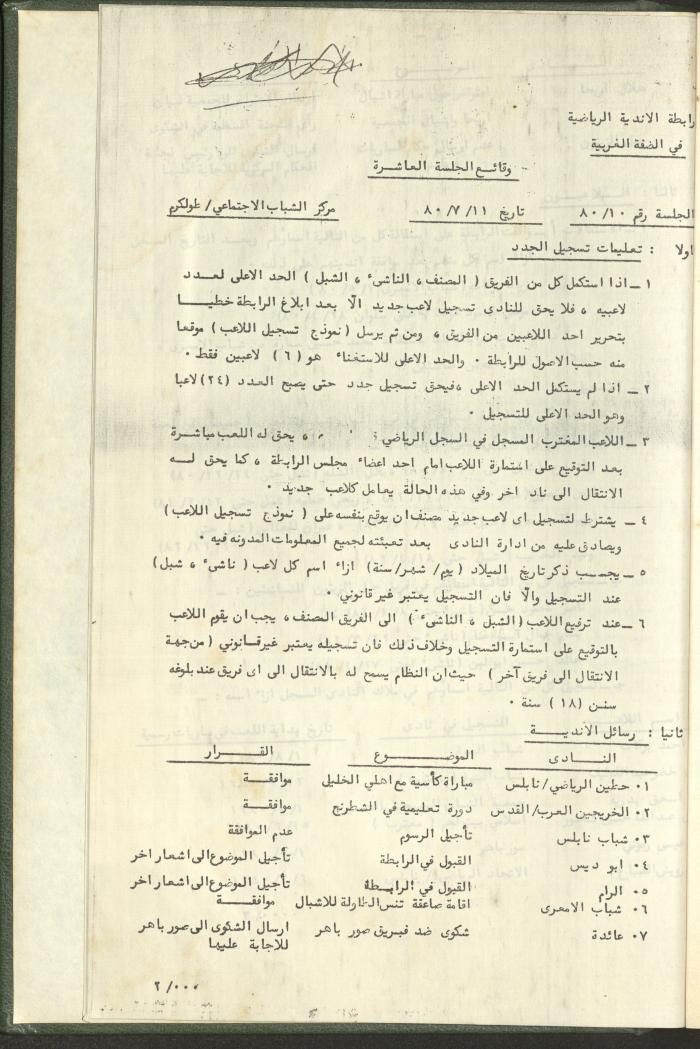 رابطة الاندية الرياضية
في الضفة الغربية
وقائع الجلسة العاشرة
الجلسة رقم ٨٠/١٠ تاريخ ٨٠/٧/١١ مركز الشباب الاجتماعي/ طولكرم
اولا : تعليمات تسجيل الجدد
١ – اذا استكمل كل من الفريق ( المصنف ، الناشىء ، الشبل ) الحد الاعلى لعدد
لاعبيه ، فلا يحق للنادى تسجيل لاعب جديد الّا بعد ابلاغ الرابطة خطيا
بتحرير احد اللاعبين من الفريق ، ومن ثم يرسل ( نموذج تسجيل اللاعب ) موقعا
منه حسب الاصول للرابطة ٠ والحد الاعلى للاستغناء هو ( ٦ ) لاعبين فقط ٠
٢ – اذا لم يستكمل الحد الاعلى ،فيحق تسجيل جدد حتى يصبح العدد (٢٤) لاعبا
وهو الحد الاعلى للتسجيل ٠
٣ – اللاعب المغترب المسجل في السجل الرياضي ، يحق له اللعب مباشرة
بعد التوقيع على استمارة اللاعب امام احد اعضاء مجلس الرابطة ، كما يحق له
الانتقال الى ناد اخر وفي هذه الحالة يعامل كلاعب جديد ٠
٤ – يشترط لتسجيل اى لاعب جديد مصنف ان يوقع بنفسه على ( نموذج تسجيل اللاعب )
ويصادق عليه من ادارة النادى بعد تعبئته لجميع المعلومات المدونه فيه ٠
٥ – يجب ذكر تاريخ الميلاد ( يوم/ شهر/ سنة ) ازاء اسم كل لاعب ( ناشىء ، شبل )
عند التسجيل والّا فان التسجيل يعتبر غير قانوني ٠
٦ – عند ترفيع اللاعب ( الشبل ، الناشىء ) الى الفريق المصنف ، يجب ان يقوم اللاعب
بالتوقيع على استمارة التسجيل وخلاف ذلك فان تسجيله يعتبر غير قانوني ( من جهة
الانتقال الى فريق آخر ) حيث ان النظام يسمح له بالانتقال الى اى فريق عند بلوغه
سن ( ١٨ ) سنة ٠
ثانيا : رسائل الاندية
النادى الموضوع القرار
٠١ حطين الرياضي/ نابلس مباراة كأسية مع اهلي الخليل موافقة
٠٢ الخريجين العرب/ القدس دورة تعليمية في الشطرنج موافقة
٠٣ شباب نابلس تأجيل الرسوم عدم الموافقة
٠٤ ابو ديس القبول في الرابطة تأجيل الموضوع الى اشعار اخر
٠٥ الرام القبول في الرابطة تأجيل الموضوع الى اشعار اخر
٠٦ شباب الامعرى اقامة صاعقة تنس الطاولة للاشبال موافقة
٠٧ عائدة شكوى ضد فريق صور باهر ارسال الشكوى الى صور باهر
للاجابة عليها
٢/٠٠٠